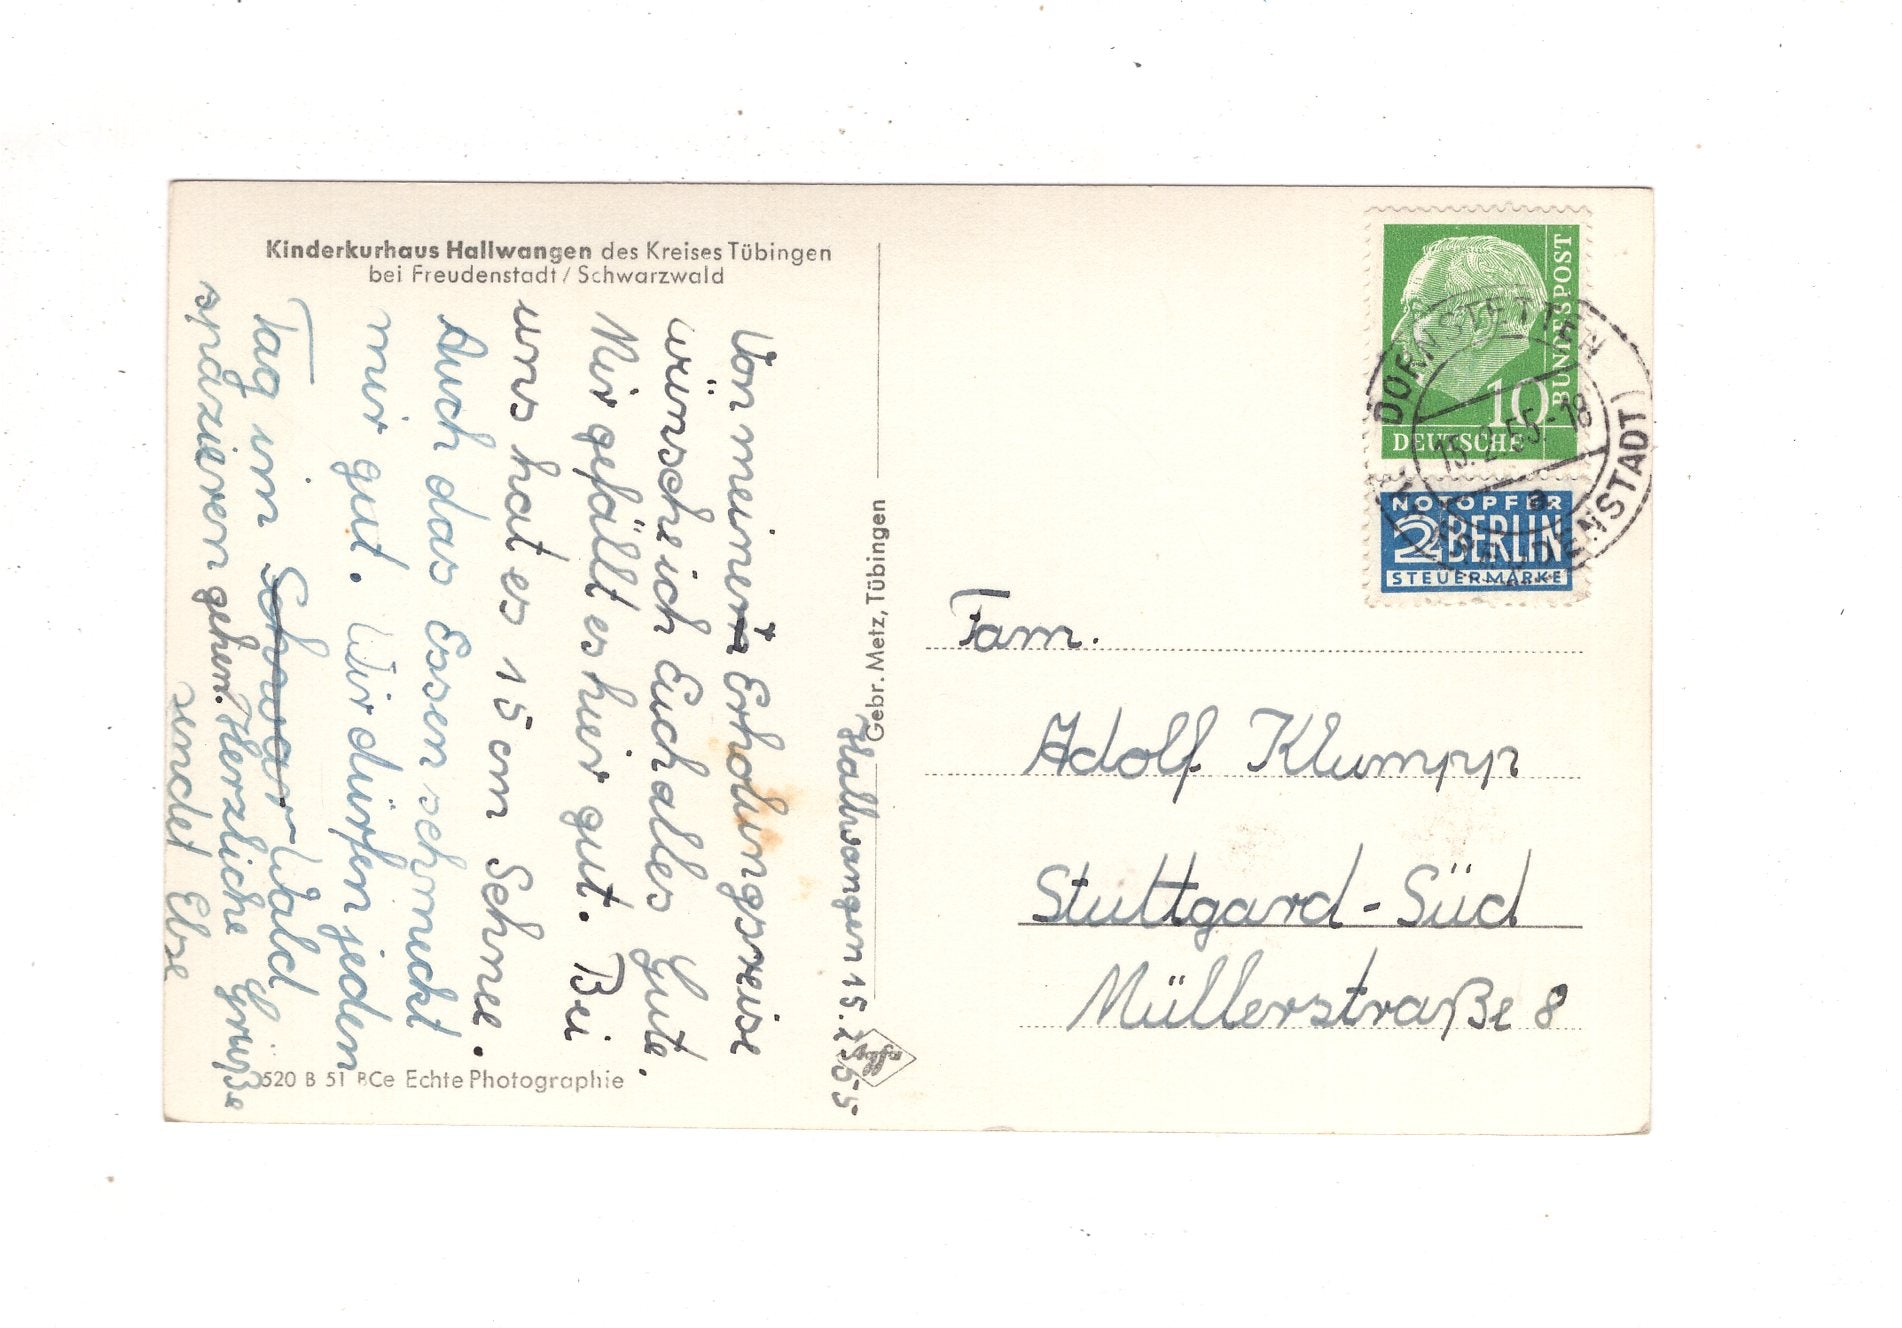 Kinderkurhaus Hallwangen des Kreises Tübingen
bei Freudenstadt / Schwarzwald
Hallwangen 15.2.55
Von meiner Erholungsreise
wünsche ich Euch alles Gute.
Mir gefällt es hier gut. Bei
uns hat es 15 cm Schnee.
Auch das Essen schmeckt
mir gut. Wir dürfen jeden
Tag im Schwar Wald
spazieren gehen. Herzliche Grüße
sendet Else
520 B 51 BCe Echte Photographie
Gebr. Metz, Tübingen
Agfa
DEUTSCHE
BUNDESPOST
10
NOTOPFER
2 BERLIN
STEUERMARKE
DORNSTETTEN
15.2.55.-18
a
(KR. FREUDENSTADT)
Fam.
Adolf Klumpp
Stuttgard-Süd
Müllerstraße 8